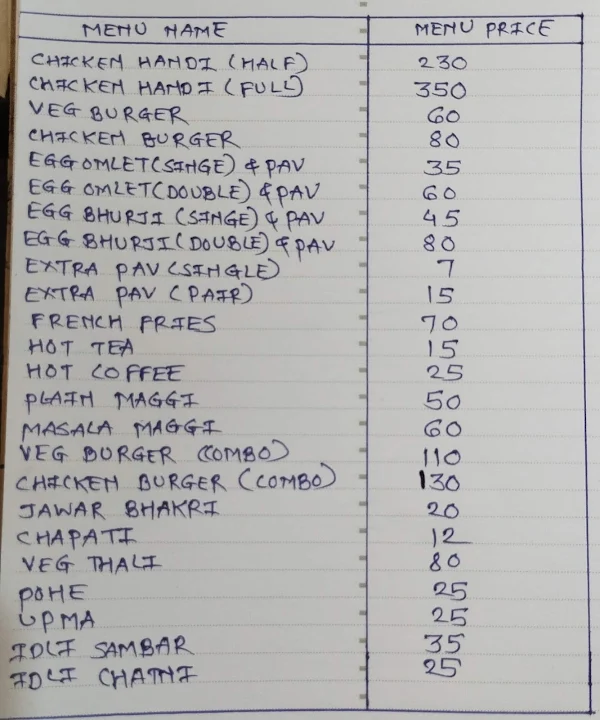 MENU NAME MENU PRICE
CHICKEN HANDI (HALF) 230
CHICKEN HANDI (FULL) 350
VEG BURGER 60
CHICKEN BURGER 80
EGG OMLET(SINGE) & PAV 35
EGG OMLET(DOUBLE) & PAV 60
EGG BHURJI (SINGE) & PAV 45
EGG BHURJI (DOUBLE) & PAV 80
EXTRA PAV (SINGLE) 7
EXTRA PAV (PAIR) 15
FRENCH FRIES 70
HOT TEA 15
HOT COFFEE 25
PLAIN MAGGI 50
MASALA MAGGI 60
VEG BURGER (COMBO) 110
CHICKEN BURGER (COMBO) 130
JAWAR BHAKRI 20
CHAPATI 12
VEG THALI 80
POHE 25
UPMA 25
IDLI SAMBAR 35
IDLI CHATNI 25